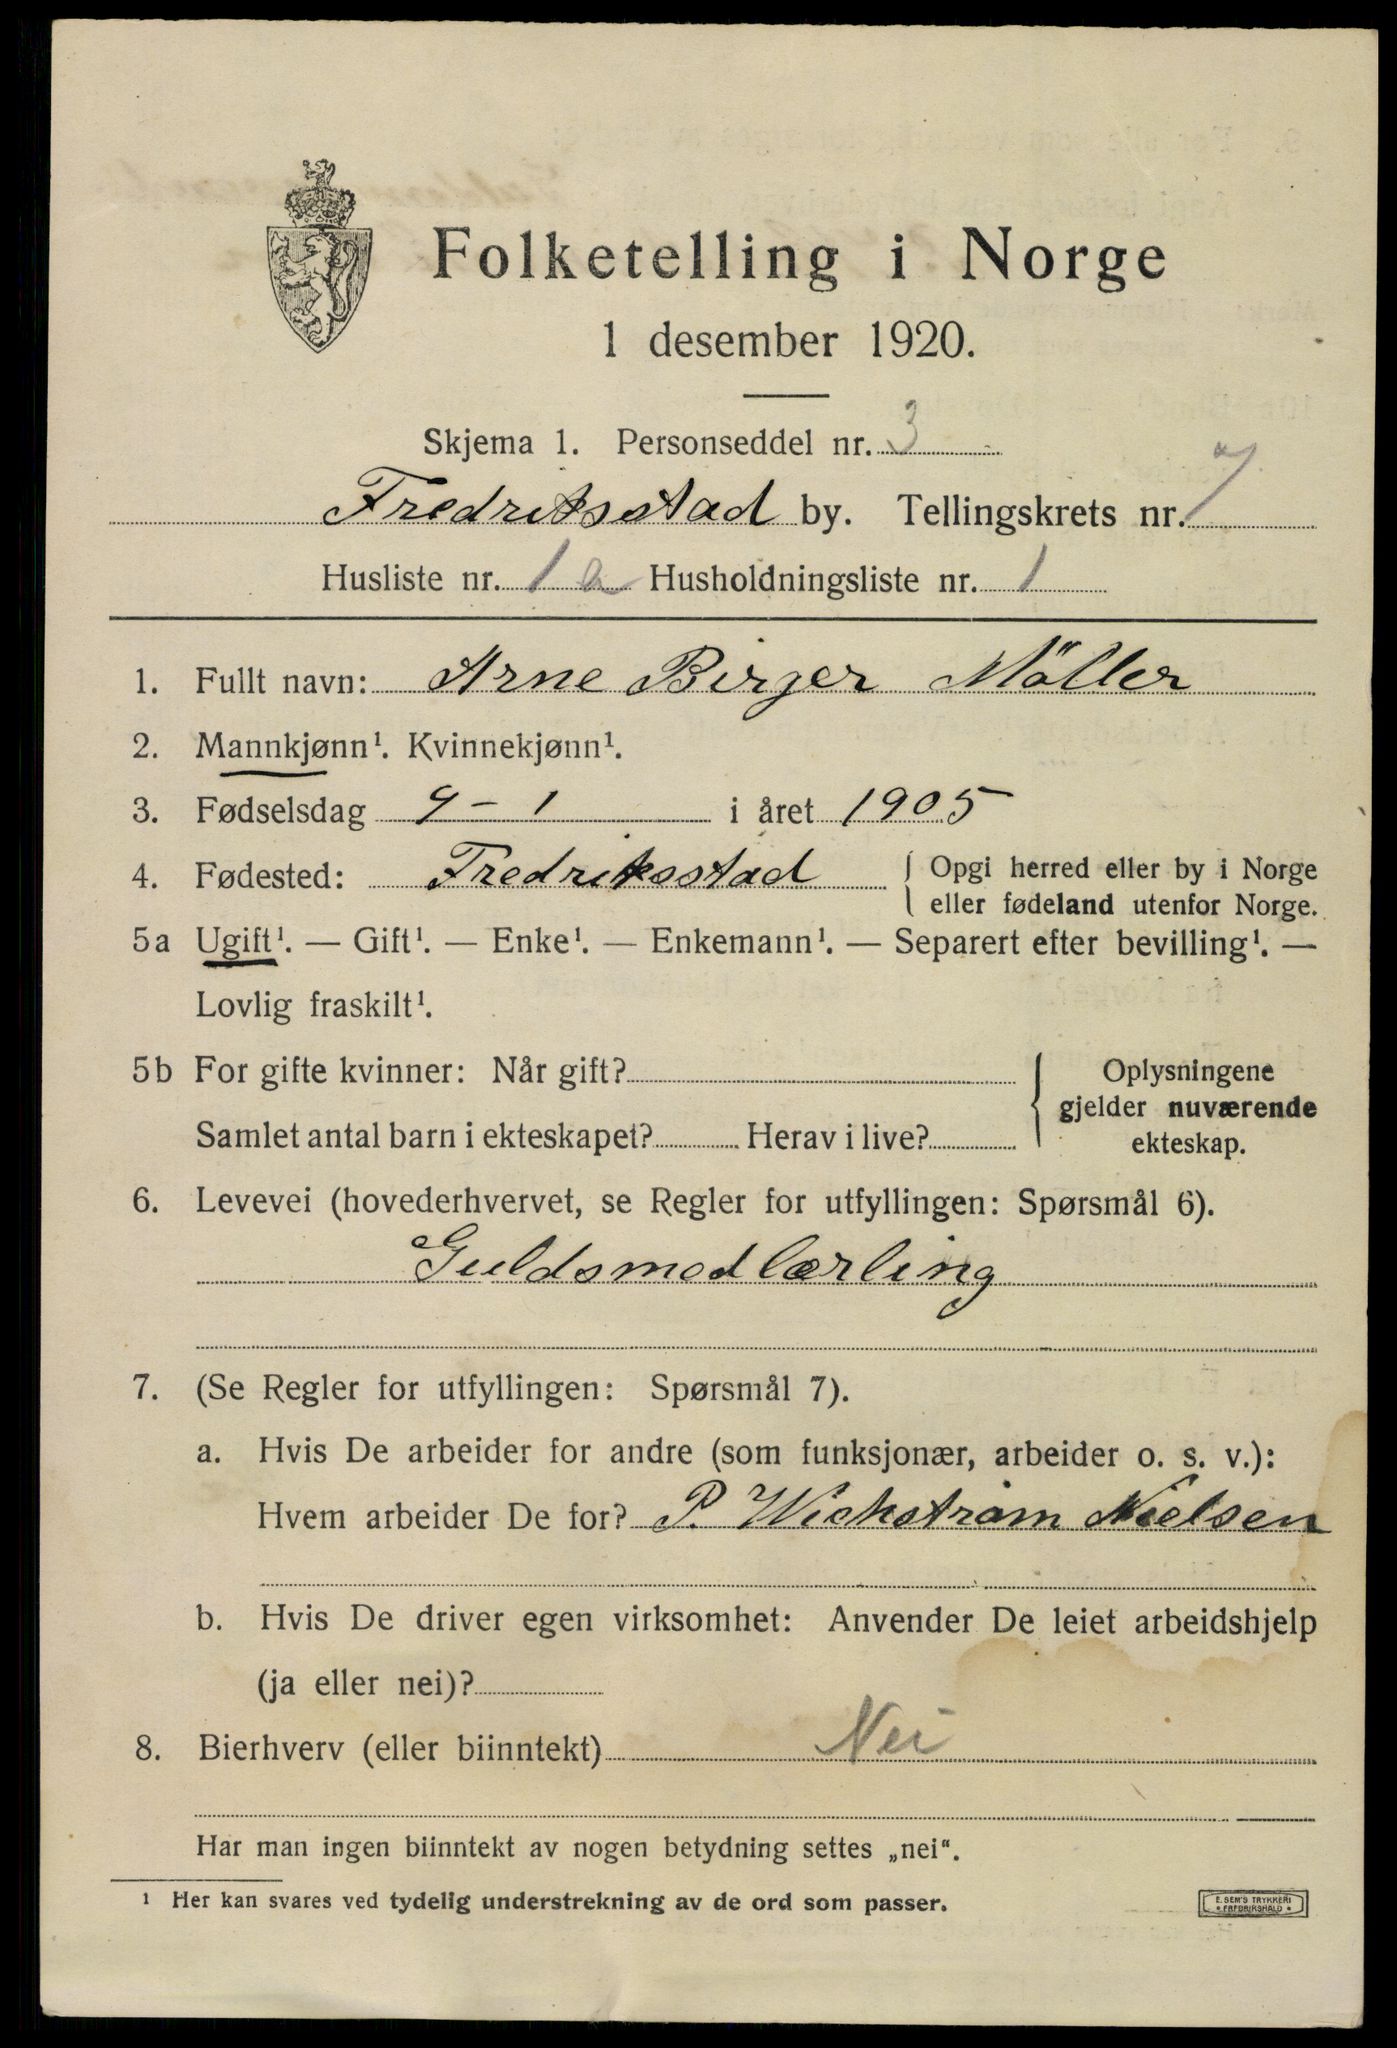 Folketelling i Norge
1 desember 1920.
Skjema 1. Personseddel nr. 3
Fredriksstad by. Tellingskrets nr. 7
Husliste nr. 1 a Husholdningsliste nr. 1
1. Fullt navn: Arne Birger Möller
2. Mannkjønn¹. Kvinnekjønn¹.
3. Fødselsdag 9 - 1 i året 1905
4. Fødested: Fredriksstad { Opgi herred eller by i Norge
eller fødeland utenfor Norge.
5a Ugift¹. — Gift¹. — Enke¹. — Enkemann¹. — Separert efter bevilling¹. —
Lovlig fraskilt¹.
5b For gifte kvinner: Når gift? { Oplysningene
gjelder nuværende
Samlet antal barn i ekteskapet? Herav i live? ekteskap.
6. Levevei (hovederhvervet, se Regler for utfyllingen: Spørsmål 6).
Guldsmedlærling
7. (Se Regler for utfyllingen: Spørsmål 7).
a. Hvis De arbeider for andre (som funksjonær, arbeider o. s. v.):
Hvem arbeider De for? P. Wichstrøm Nielsen
b. Hvis De driver egen virksomhet: Anvender De leiet arbeidshjelp
(ja eller nei)?
8. Bierhverv (eller biinntekt) Nei
Har man ingen biinntekt av nogen betydning settes „nei“.
¹ Her kan svares ved tydelig understrekning av de ord som passer.
E. SEM'S TRYKKERI
* FREDRIKSHALD *